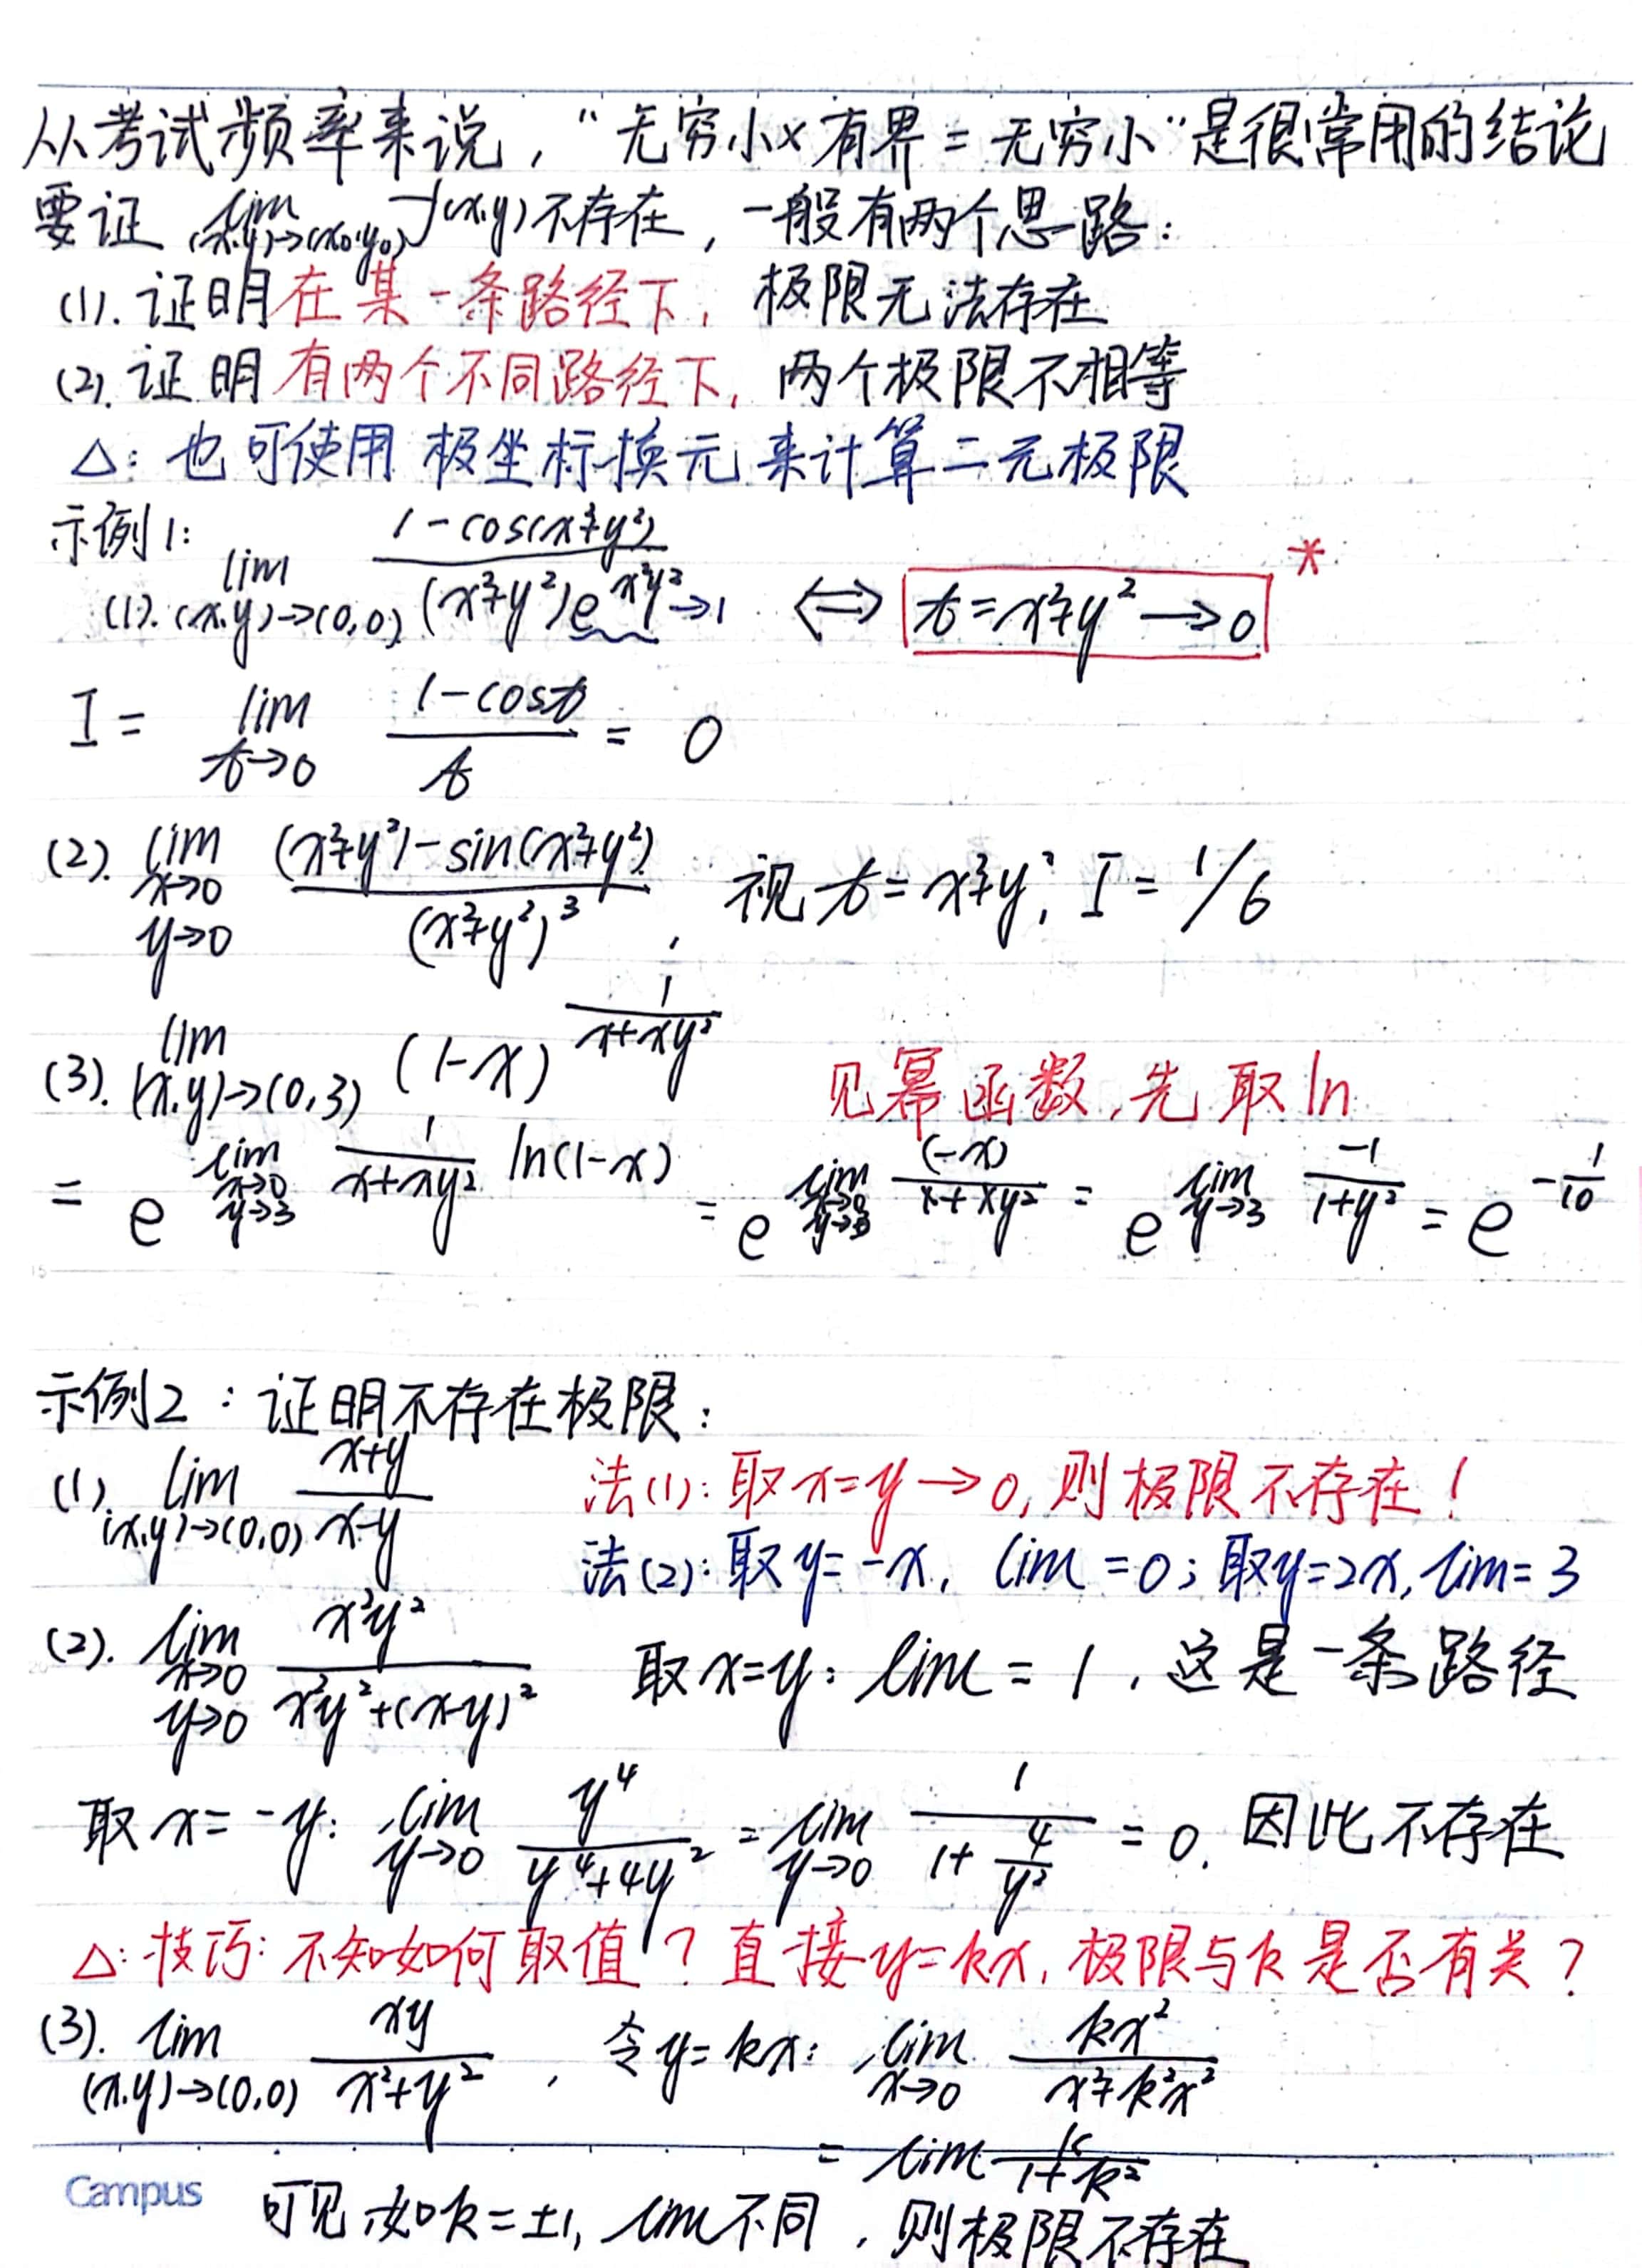 从考试频率来说，“无穷小×有界=无穷小”是很常用的结论
要证 lim (x,y)→(x₀,y₀) f(x,y)不存在，一般有两个思路：
(1). 证明在某一条路径下，极限无法存在
(2). 证明有两个不同路径下，两个极限不相等
△：也可使用极坐标换元来计算二元极限
示例1：
(1). lim (x,y)→(0,0) (1-cos(x²+y²))/((x²+y²)e^(x²y²)) →1 ⇔ t=x²+y²→0 *
I = lim t→0 (1-cost)/t = 0
(2). lim x→0 y→0 ((x²+y²)-sin(x²+y²))/(x²+y²)³， 视t=x²+y²，I=1/6
(3). lim (x,y)→(0,3) (1-x)^(1/(x+xy²)) 见幂函数，先取ln
= e^(lim x→0 y→3 1/(x+xy²) ln(1-x)) = e^(lim x→0 y→3 (-x)/(x+xy²)) = e^(lim y→3 -1/(1+y²)) = e^(-1/10)
示例2：证明不存在极限：
(1). lim (x,y)→(0,0) (x+y)/(x-y) 法(1)：取x=y→0，则极限不存在！
法(2)：取y=-x，lim=0；取y=2x，lim=3
(2). lim x→0 y→0 x²y²/(x²y²+(x-y)²) 取x=y：lim=1，这是一条路径
取x=-y：lim y→0 y⁴/(y⁴+4y²) = lim y→0 1/(1+4/y²) = 0. 因此不存在
△：技巧：不知如何取值？直接y=kx，极限与k是否有关？
(3). lim (x,y)→(0,0) xy/(x²+y²)，令y=kx：lim x→0 kx²/(x²+k²x²)
= lim k/(1+k²)
Campus
可见如k=±1，lim不同，则极限不存在